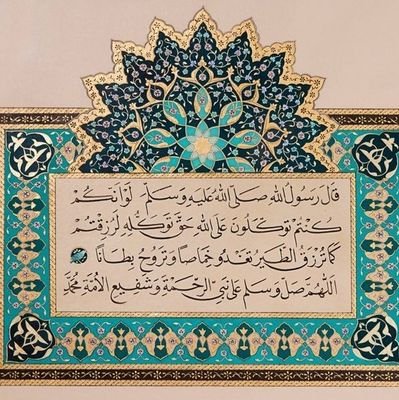 قَالَ رَسُولُ اللهِ صَلَّى اللهُ عَلَيْهِ وَسَلَّمَ لَوْ أَنَّكُمْ
كُنْتُمْ تَوَكَّلُونَ عَلَى اللهِ حَقَّ تَوَكُّلِهِ لَرُزِقْتُمْ
كَمَا تُرْزَقُ الطَّيْرُ تَغْدُو خِمَاصًا وَتَرُوحُ بِطَانًا
اللَّهُمَّ صَلِّ وَسَلِّمْ عَلَى نَبِيِّ الرَّحْمَةِ وَشَفِيعِ الْأُمَّةِ مُحَمَّدٍ